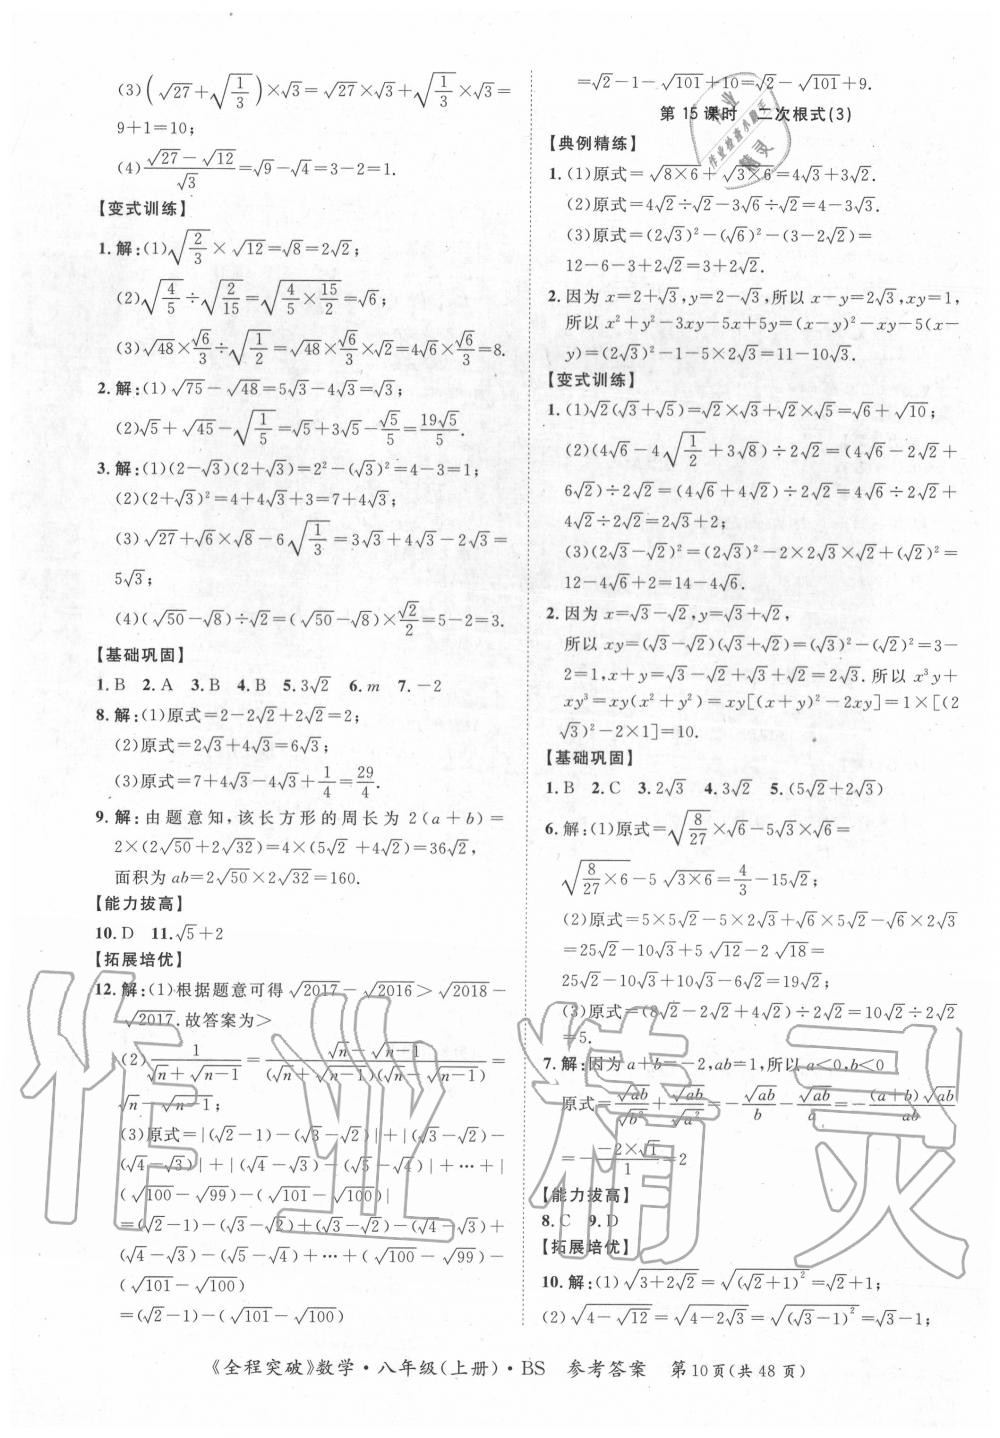 (3)(√27+√(1/3))×√3=√27×√3+√(1/3)×√3=
9+1=10;
(4)(√27-√12)/√3=√9-√4=3-2=1.
【变式训练】
1.解:(1)√(2/3)×√12=√8=2√2;
(2)√(4/5)÷√(2/15)=√(4/5×15/2)=√6;
(3)√48×√6/3÷√(1/2)=√48×√6/3×√2=4√6×√6/3=8.
2.解:(1)√75-√48=5√3-4√3=√3;
(2)√5+√45-√(1/5)=√5+3√5-√5/5=19√5/5.
3.解:(1)(2-√3)(2+√3)=2²-(√3)²=4-3=1;
(2)(2+√3)²=4+4√3+3=7+4√3;
(3)√27+√6×√8-6√(1/3)=3√3+4√3-2√3=
5√3;
(4)(√50-√8)÷√2=(√50-√8)×√2/2=5-2=3.
【基础巩固】
1.B 2.A 3.B 4.B 5.3√2 6.m 7.-2
8.解:(1)原式=2-2√2+2√2=2;
(2)原式=2√3+4√3=6√3;
(3)原式=7+4√3-4√3+1/4=29/4.
9.解:由题意知,该长方形的周长为2(a+b)=
2×(2√50+2√32)=4×(5√2+4√2)=36√2,
面积为ab=2√50×2√32=160.
【能力拔高】
10.D 11.√5+2
【拓展培优】
12.解:(1)根据题意可得√2017-√2016>√2018-
√2017.故答案为>
(2)1/(√n+√(n-1))=(√n-√(n-1))/((√n+√(n-1))(√n-√(n-1)))=
√n-√(n-1);
(3)原式=|(√2-1)-(√3-√2)|+|(√3-√2)-
(√4-√3)|+|(√4-√3)-(√5-√4)|+…+|
(√100-√99)-(√101-√100)|
=(√2-1)-(√3-√2)+(√3-√2)-(√4-√3)+
(√4-√3)-(√5-√4)+…+(√100-√99)-
(√101-√100)
=(√2-1)-(√101-√100)
=√2-1-√101+10=√2-√101+9.
第15课时 二次根式(3)
【典例精练】
1.(1)原式=√(8×6)+√(3×6)=4√3+3√2.
(2)原式=4√2÷√2-3√6÷2√2=4-3/2√3.
(3)原式=(2√3)²-(√6)²-(3-2√2)=
12-6-3+2√2=3+2√2.
2.因为x=2+√3,y=2-√3,所以x-y=2√3,xy=1,
所以x²+y²-3xy-5x+5y=(x-y)²-xy-5(x-
y)=(2√3)²-1-5×2√3=11-10√3.
【变式训练】
1.(1)√2(√3+√5)=√2×√3+√2×√5=√6+√10;
(2)(4√6-4√(1/2)+3√8)÷2√2=(4√6-2√2+
6√2)÷2√2=(4√6+4√2)÷2√2=4√6÷2√2+
4√2÷2√2=2√3+2;
(3)(2√3-√2)²=(2√3)²-2×2√3×√2+(√2)²=
12-4√6+2=14-4√6.
2.因为x=√3-√2,y=√3+√2,
所以xy=(√3-√2)(√3+√2)=(√3)²-(√2)²=3-
2=1,x+y=√3-√2+√3+√2=2√3.所以x³y+
xy³=xy(x²+y²)=xy[(x+y)²-2xy]=1×[(2
√3)²-2×1]=10.
【基础巩固】
1.B 2.C 3.2√3 4.3√2 5.(5√2+2√3)
6.解:(1)原式=√(8/27)×√6-5√3×√6=
√(8/27×6)-5√(3×6)=4/3-15√2;
(2)原式=5×5√2-5×2√3+√6×5√2-√6×2√3
=25√2-10√3+5√12-2√18=
25√2-10√3+10√3-6√2=19√2;
(3)原式=(8√2-2√2+4√2)÷2√2=10√2÷2√2
=5.
7.解:因为a+b=-2,ab=1,所以a<0,b<0
原式=√ab/√b²+√ab/√a²=-√ab/b-√ab/a=-(a+b)√ab/ab
=-(-2×√1)/1=2
【能力拔高】
8.C 9.D
【拓展培优】
10.解:(1)√(3+2√2)=√((√2+1)²)=√2+1;
(2)√(4-√12)=√(4-2√3)=√((√3-1)²)=√3-1;
《全程突破》数学·八年级(上册)·BS 参考答案 第10页(共48页)
作业精灵